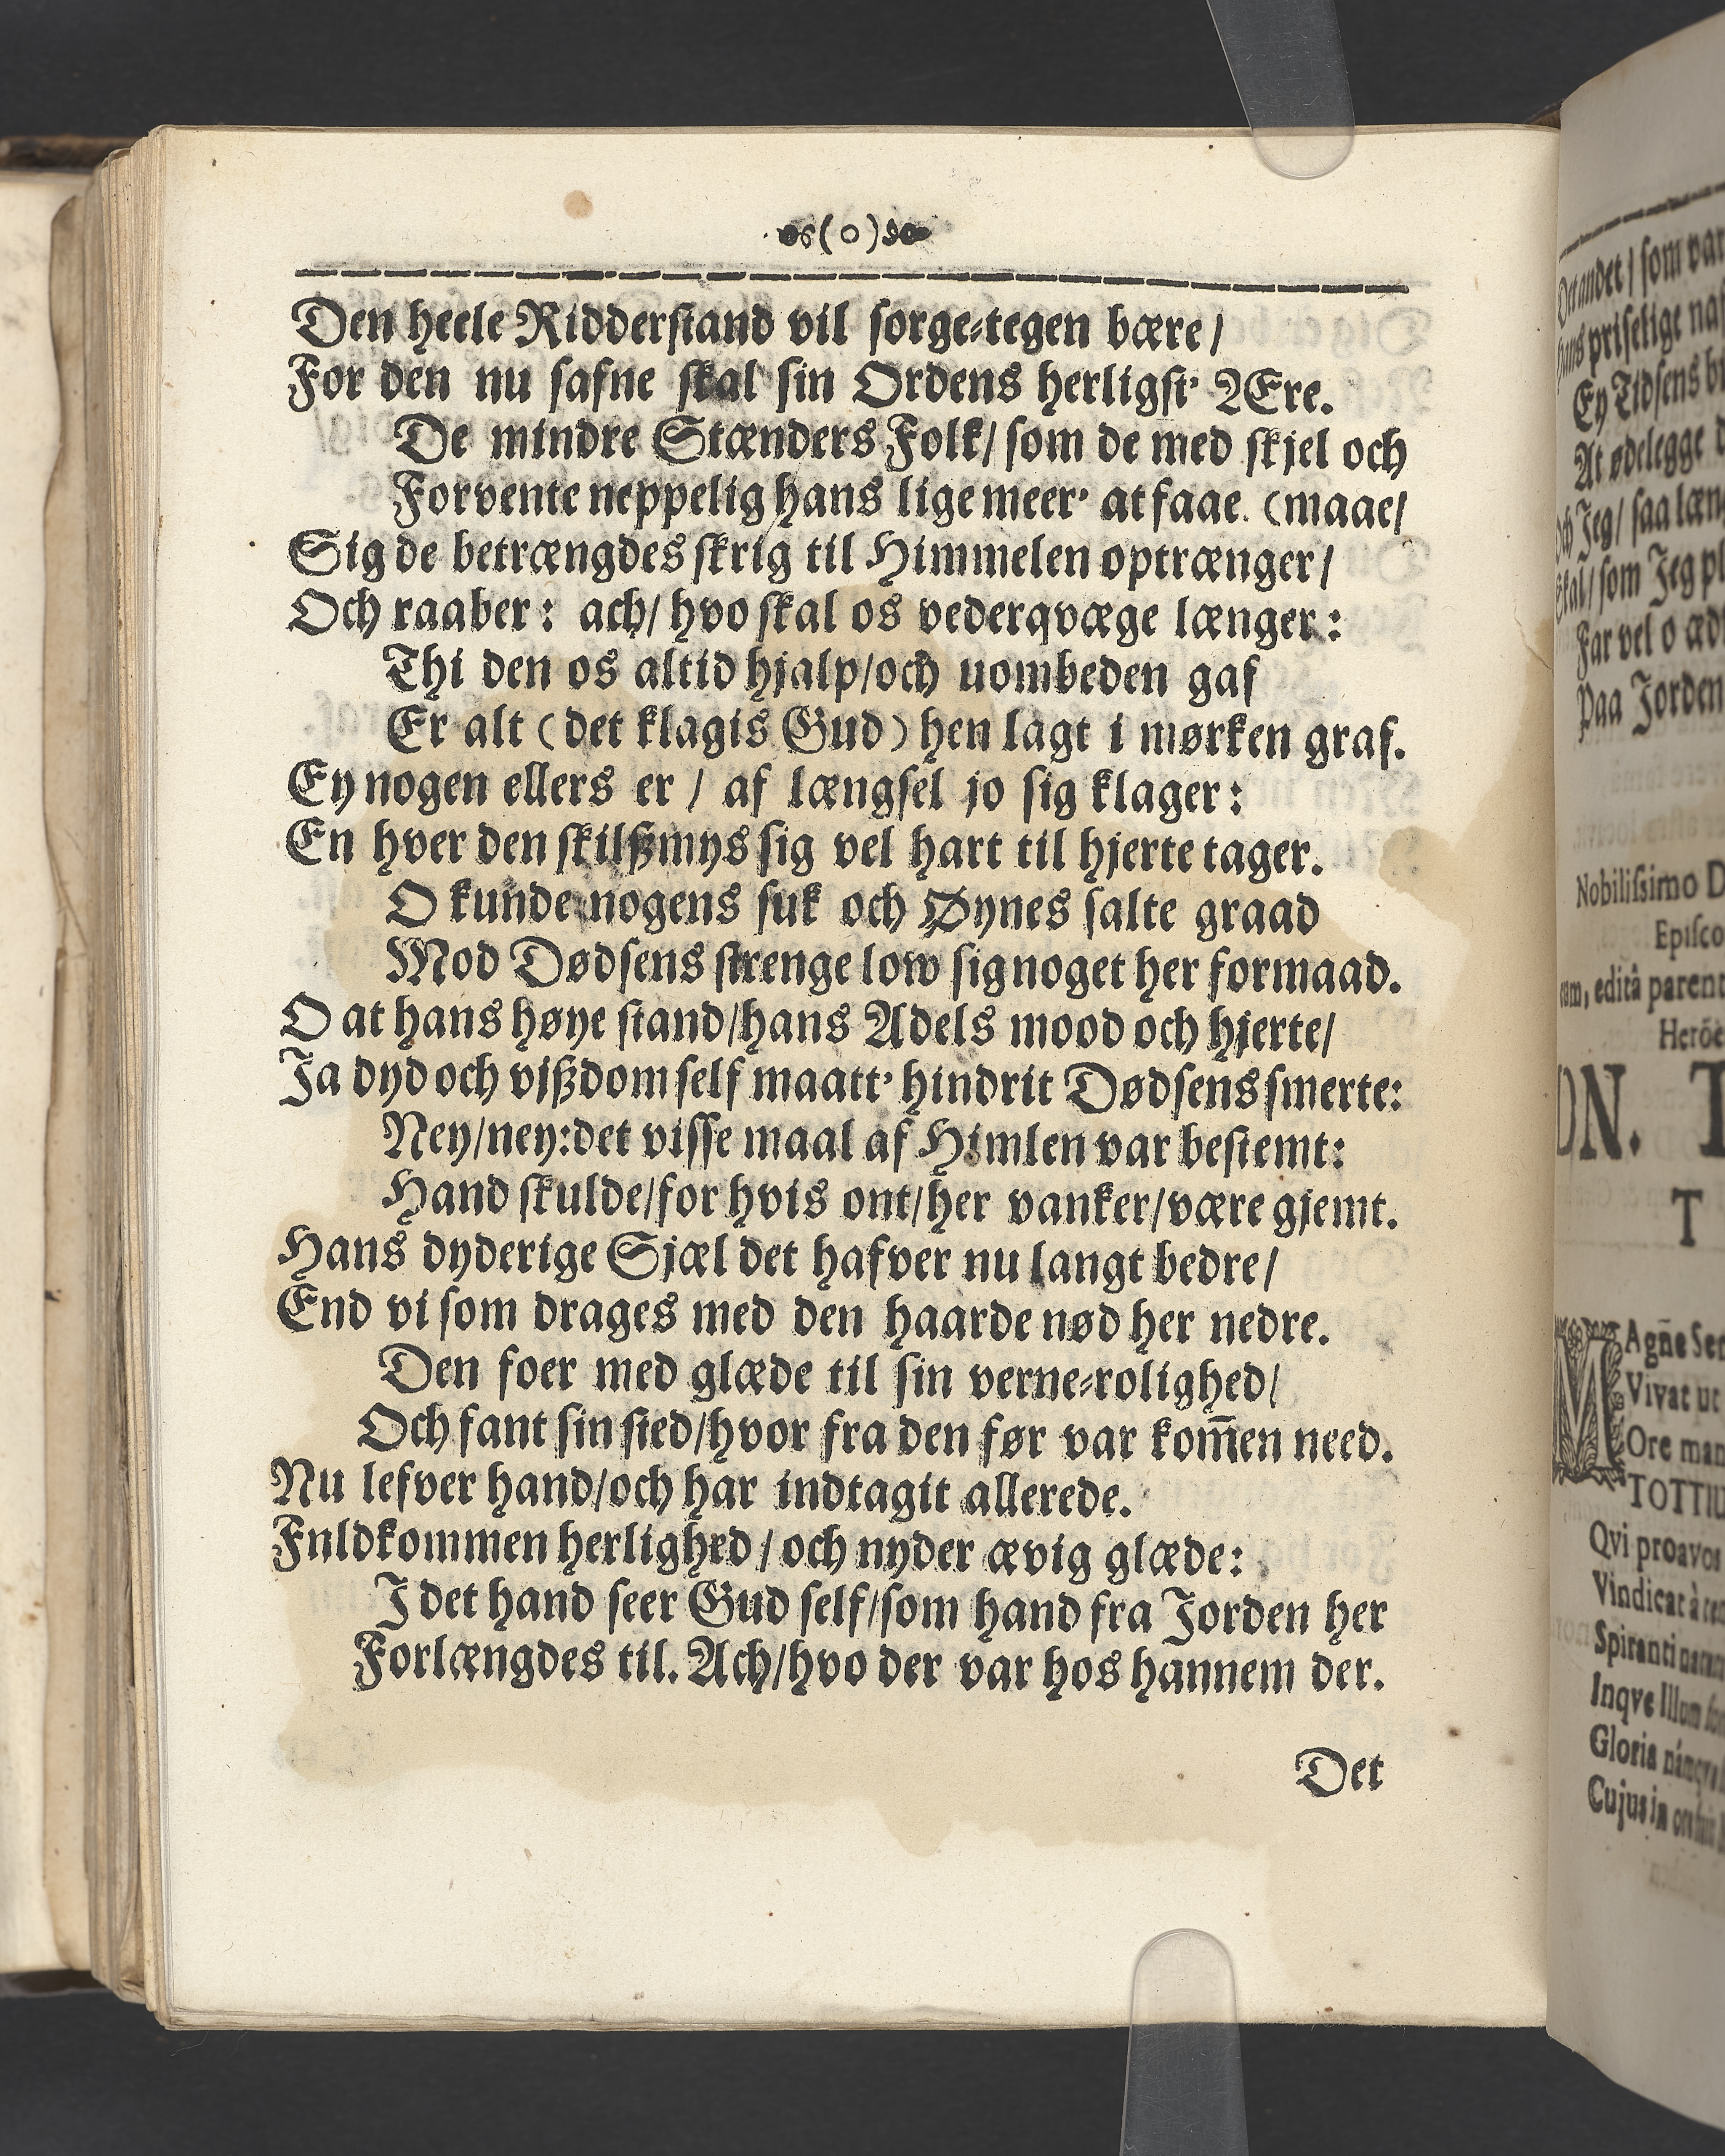 (o)
Den heele Ridderstand vil sorge-tegen bære/
For den nu safne skal sin Ordens herligst' Ære.
De mindre Stænders Folk/ som de med skjel och
Forvente neppelig hans lige meer' at faae. (maae/
Sig de betrængdes skrig til Himmelen optrænger/
Och raaber: ach/ hvo skal os vederqvæge længer:
Thi den os altid hjalp/och uombeden gaf
Er alt (det klagis Gud) hen lagt i mørken graf.
Ey nogen ellers er / af længsel jo sig klager:
En hver den skilßmys sig vel hart til hjerte tager.
O kunde nogens suk och Øynes salte graad
Mod Dødsens strenge low sig noget her formaad.
O at hans høye stand/hans Adels mood och hjerte/
Ja dyd och vißdom self maatt' hindrit Dødsens smerte:
Ney/ney:det visse maal af Himlen var bestemt:
Hand skulde/for hvis ont/her vanker/være gjemt.
Hans dyderige Sjæl det hafver nu langt bedre/
End vi som drages med den haarde nød her nedre.
Den foer med glæde til sin verne-rolighed/
Och fant sin sted/hvor fra den før var kom̄en need.
Nu lefver hand/och har indtagit allerede.
Fnldkommen herlighrd / och nyder ævig glæde:
I det hand seer Gud self/som hand fra Jorden her
Forlængdes til. Ach/hvo der var hos hannem der.
Det
Det andet / som var
hans priselige na
Ey Tidsens
At ødelegge
Och Jeg/ saa læn
Skal/ som Jeg pl
Far vel o æd
Paa Jorden
Nobilissimo D
Episco
editâ parent
Heröe
ON. T
T
MAgñe Se
Vivat ut
Ore man
TOTTIU
Qvi proavos
Vindicat à
Spiranti
Inqve Illum
Gloria
Cujus in